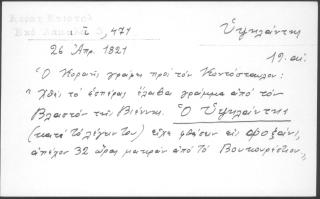 τ, 471 Ὑψηλάντης
26 Ἀπρ. 1821
19. αἰ.
Ὁ Κοραῆς γράφει πρὸς τὸν Κοντόσταυλον:
"Χθὲς τὸ ἑσπέρας ἔλαβα γράμμα ἀπὸ τὸν
Βλαστὸν τῆς Βιέννης. Ὁ Ὑψηλάντης
(κατὰ τὸ λέγειν του) εἶχε φθάσει εἰς Φοξάνι,
ἀπέχον 32 ὥρας μακρὰν ἀπὸ τὸ Βουκουρέστιον,